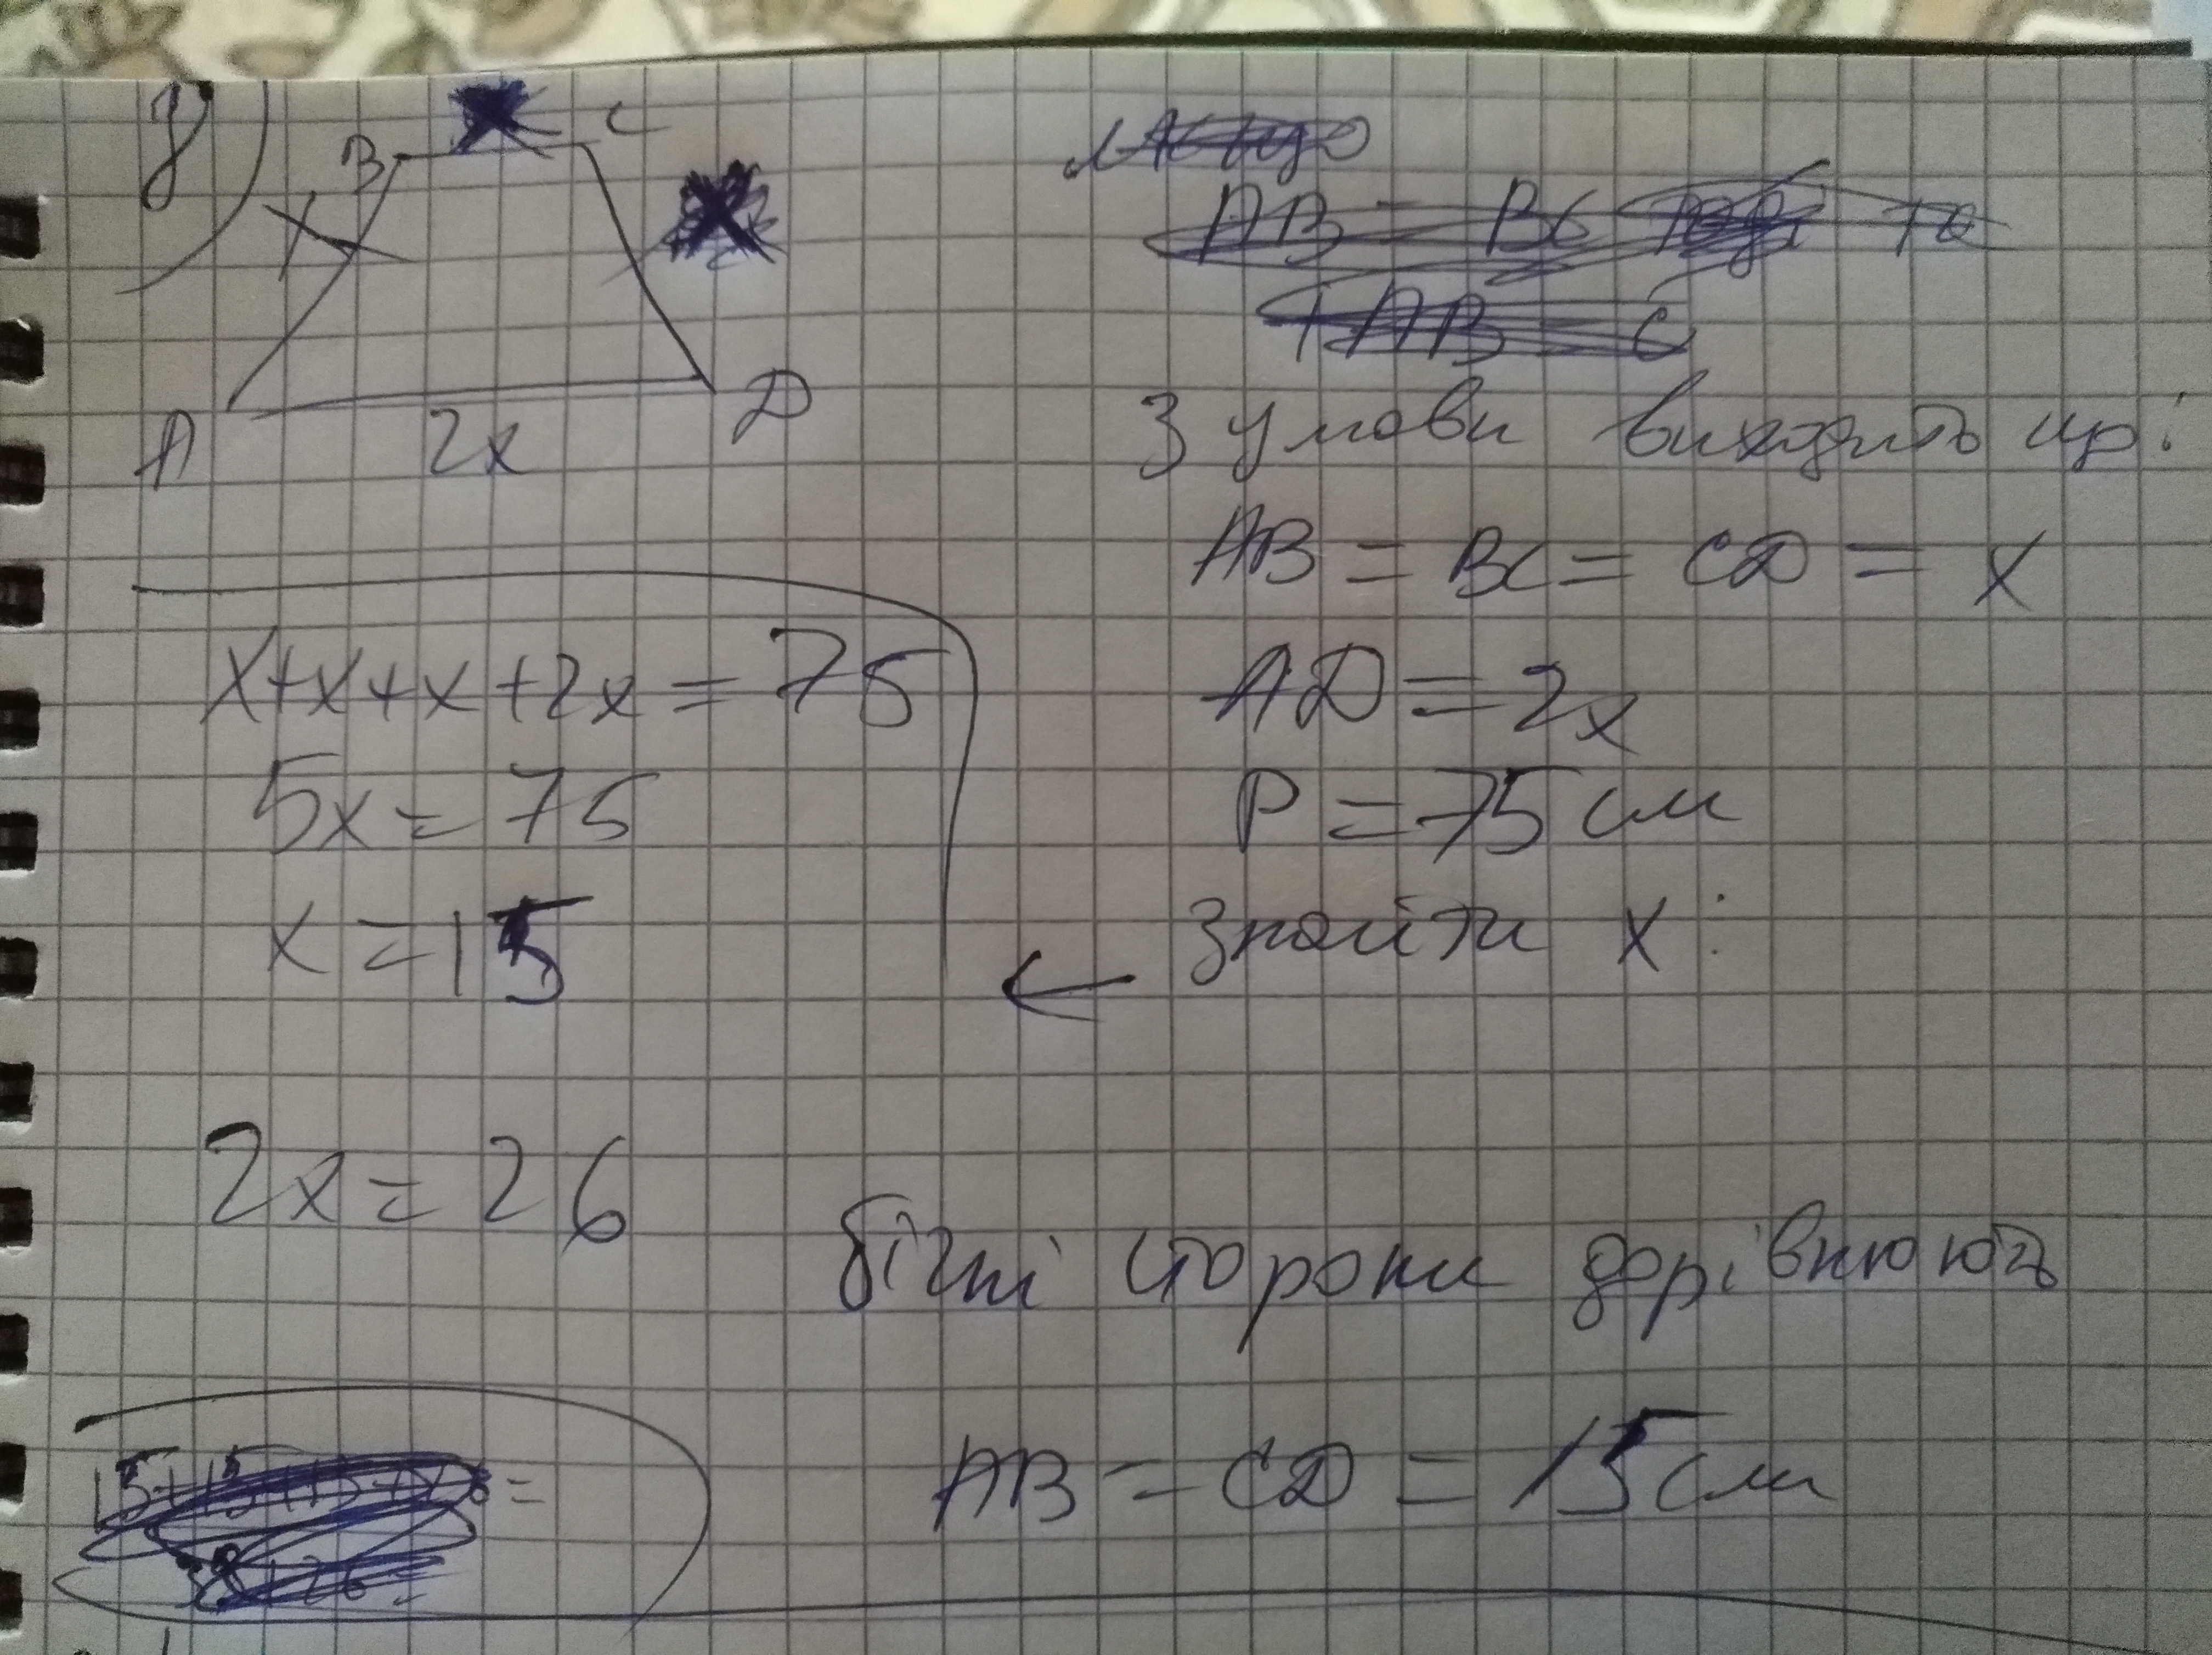 B C
X
A 2x D
З умови виходить що:
AB = BC = CD = x
AD = 2x
P = 75 см
знайти x:
x+x+x+2x = 75
5x = 75
x = 15
2x = 26
бічні сторони дорівнюють
AB = CD = 15 см